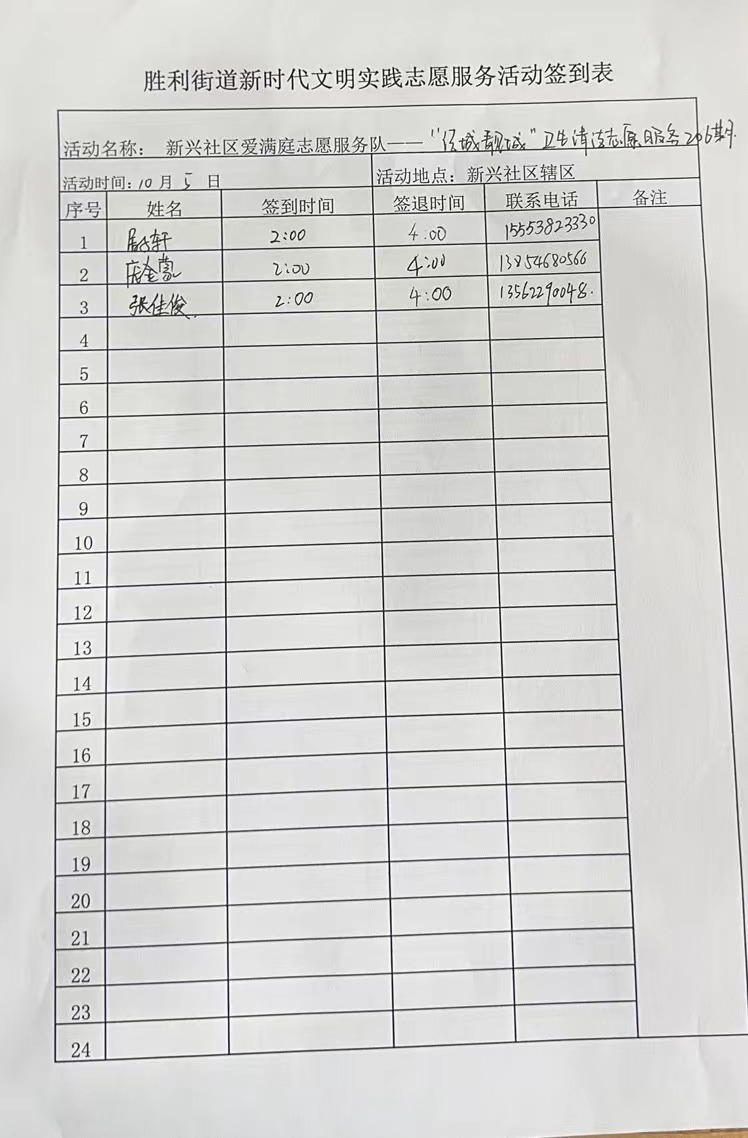 胜利街道新时代文明实践志愿服务活动签到表
活动名称: 新兴社区爱满庭志愿服务队——“靓城”卫生清洁志愿服务206期
活动时间: 10 月 5 日 活动地点: 新兴社区辖区
序号 姓名 签到时间 签退时间 联系电话 备注
1 轩 2:00 4:00 15553823330
2 2:00 4:00 13854680566
3 张佳俊 2:00 4:00 13562290048.
4
5
6
7
8
9
10
11
12
13
14
15
16
17
18
19
20
21
22
23
24